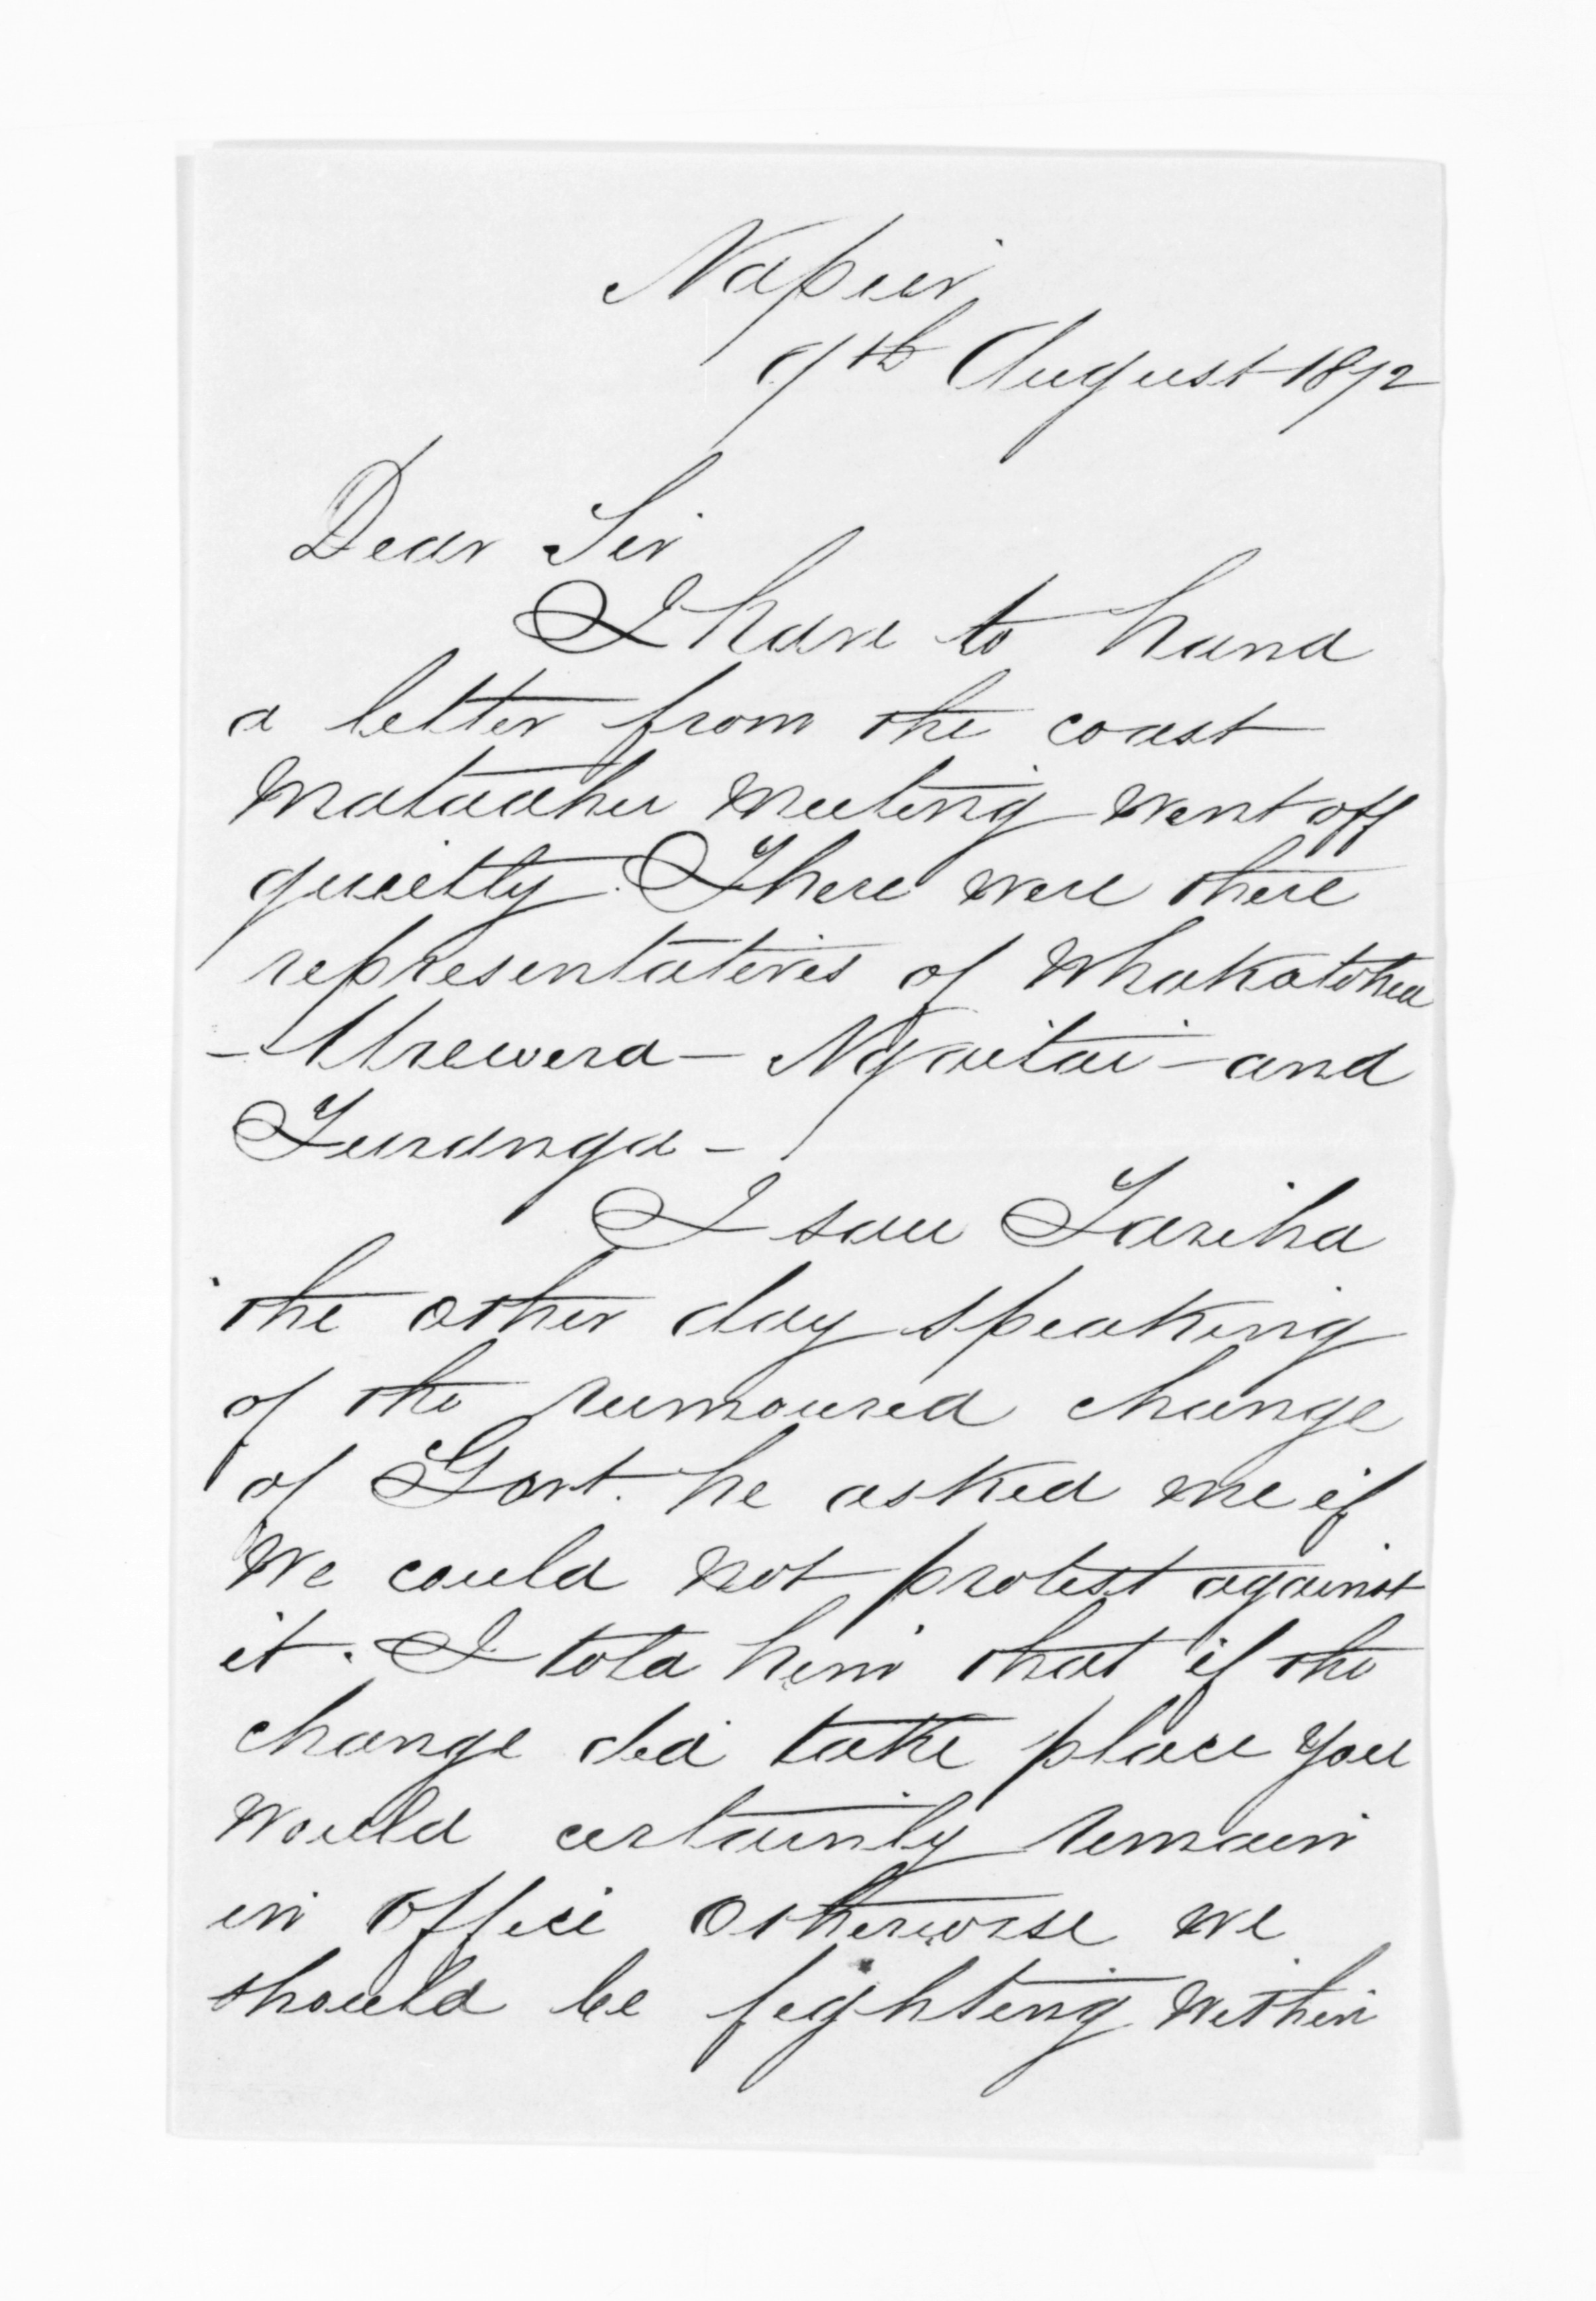 Napier
9th August 1872
Dear Sir
I have to hand
a letter from the coast
Mataahu Meeting went off
quietly. There were there
representatives of Whakatohea
- Urewera - Ngaitai - and
Turanga -
I saw Tareha
the other day speaking
of the rumoured change
of Govt. he asked me if
We could not protest against
it. I told him that if the
change did take place you
Would certainly remain
in office otherwise we
should be fighting within